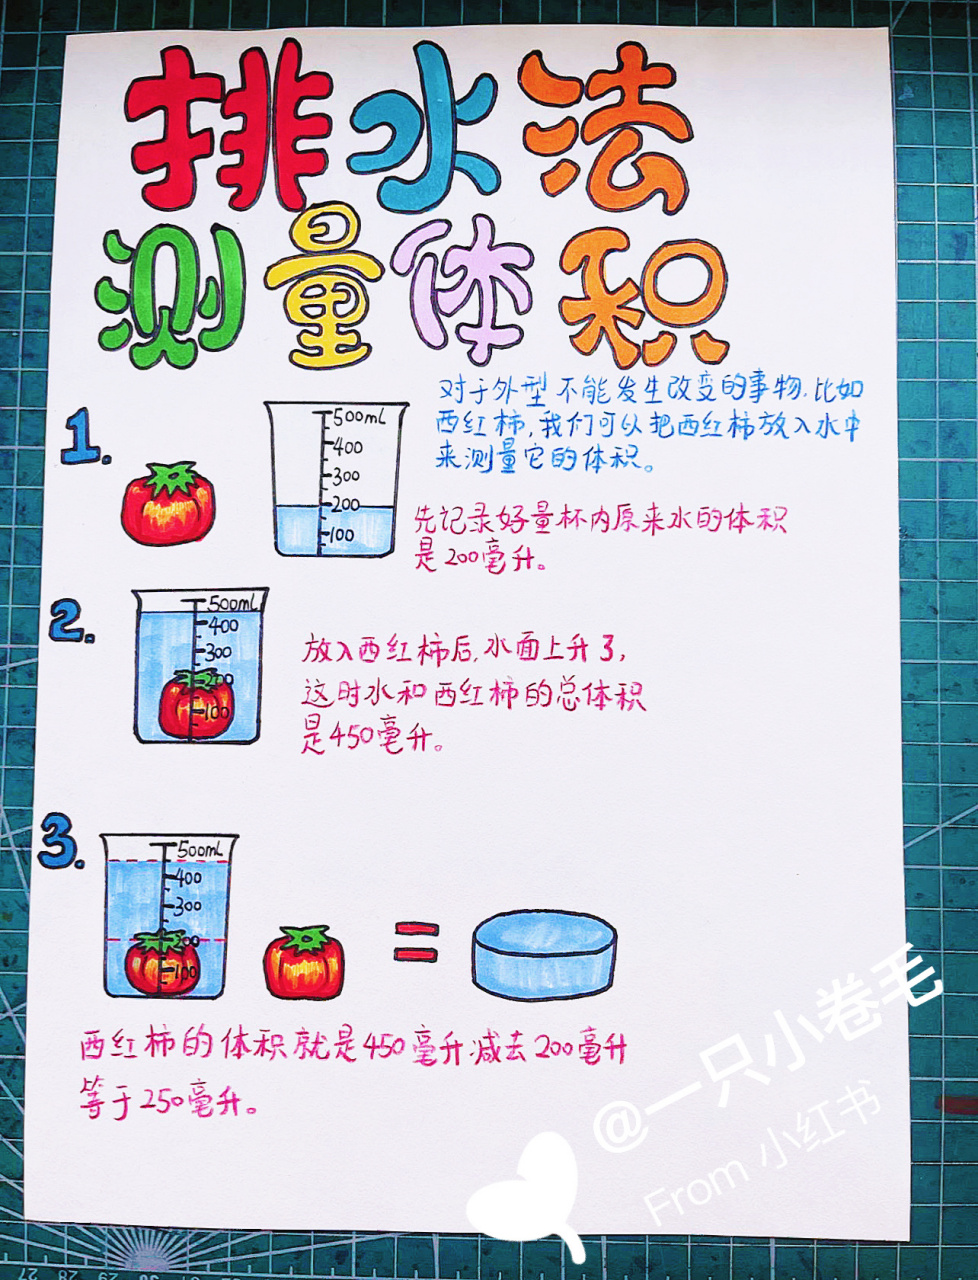 排水法
测量体积
对于外型不能发生改变的事物,比如
西红柿,我们可以把西红柿放入水中
来测量它的体积。
1.
500mL
400
300
200
100
先记录好量杯内原来水的体积
是200毫升。
2.
500mL
400
300
200
100
放入西红柿后,水面上升了,
这时水和西红柿的总体积
是450毫升。
3.
500mL
400
300
200
100
=
西红柿的体积就是450毫升减去200毫升
等于250毫升。
@一只小卷毛
From 小红书
27 28 29 30